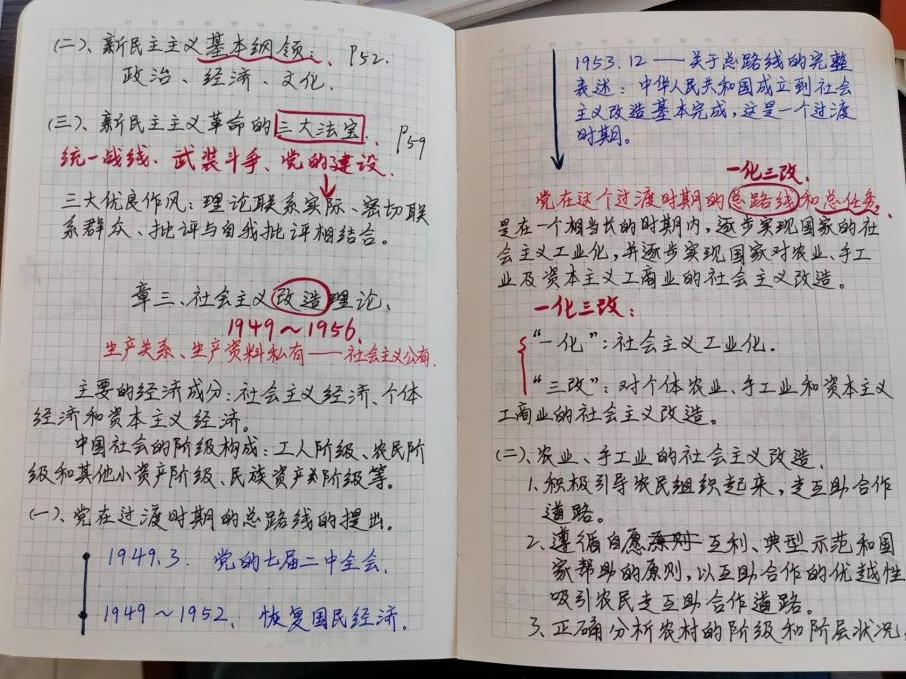 (二)、新民主主义基本纲领： P52.
政治、经济、文化.
(三)、新民主主义革命的三大法宝、 P59
统一战线、武装斗争、党的建设.
三大优良作风：理论联系实际、密切联
系群众、批评与自我批评相结合。
章三、社会主义改造理论、
1949～1956.
生产关系、生产资料私有——社会主义公有.
主要的经济成分：社会主义经济、个体
经济和资本主义经济。
中国社会的阶级构成：工人阶级、农民阶
级和其他小资产阶级、民族资产阶级等。
(一)、党在过渡时期的总路线的提出.
1949.3: 党的七届二中全会.
1949～1952、恢复国民经济.
1953.12——关于总路线的完整
表述：中华人民共和国成立到社会
主义改造基本完成，这是一个过渡
时期。
一化三改.
党在这个过渡时期的总路线和总任务，
是在一个相当长的时期内，逐步实现国家的社
会主义工业化，并逐步实现国家对农业、手工
业及资本主义工商业的社会主义改造。
一化三改：
“一化”：社会主义工业化.
“三改”：对个体农业、手工业和资本主义
工商业的社会主义改造。
(二)、农业、手工业的社会主义改造.
1. 积极引导农民组织起来，走互助合作
道路。
2. 遵循自愿原则互利、典型示范和国
家帮助的原则，以互助合作的优越性
吸引农民走互助合作道路。
3、正确分析农村的阶级和阶层状况，